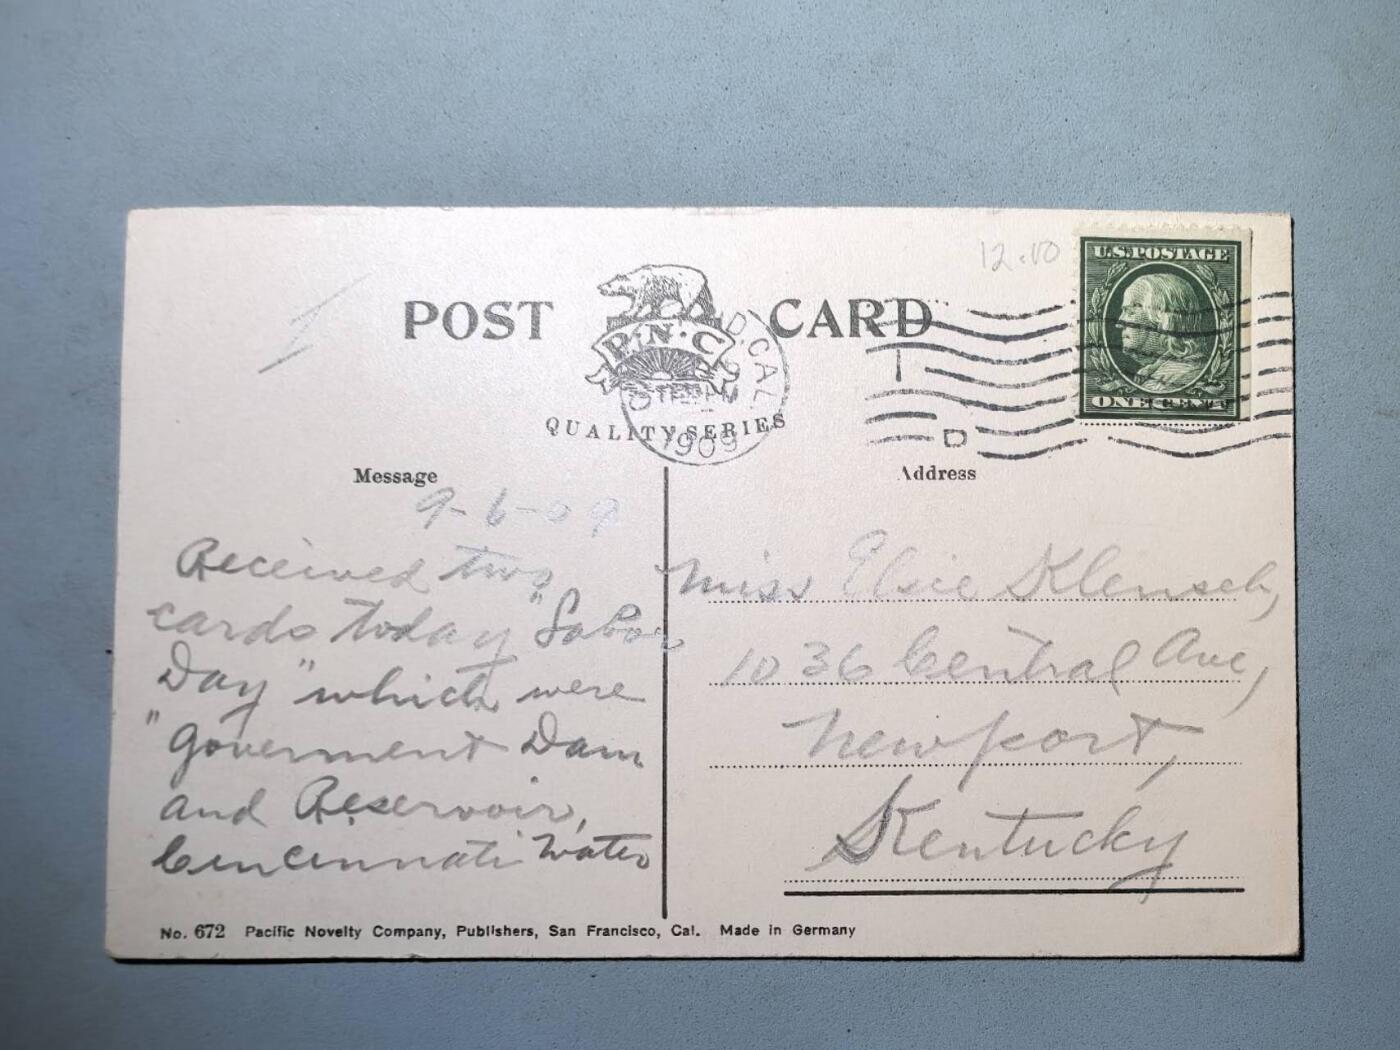 12.00
U.S. POSTAGE
ONE CENT
POST CARD
P.N.C.
D. CAL.
1909
QUALITY SERIES
D
Message
9-6-09
Received two
cards today "Labor
Day" which were
"Goverment Dam
and Reservoir,
Cincinnati Water
Address
Miss Elsie Klensch,
1036 Central Ave,
Newport,
Kentucky
No. 672 Pacific Novelty Company, Publishers, San Francisco, Cal. Made in Germany